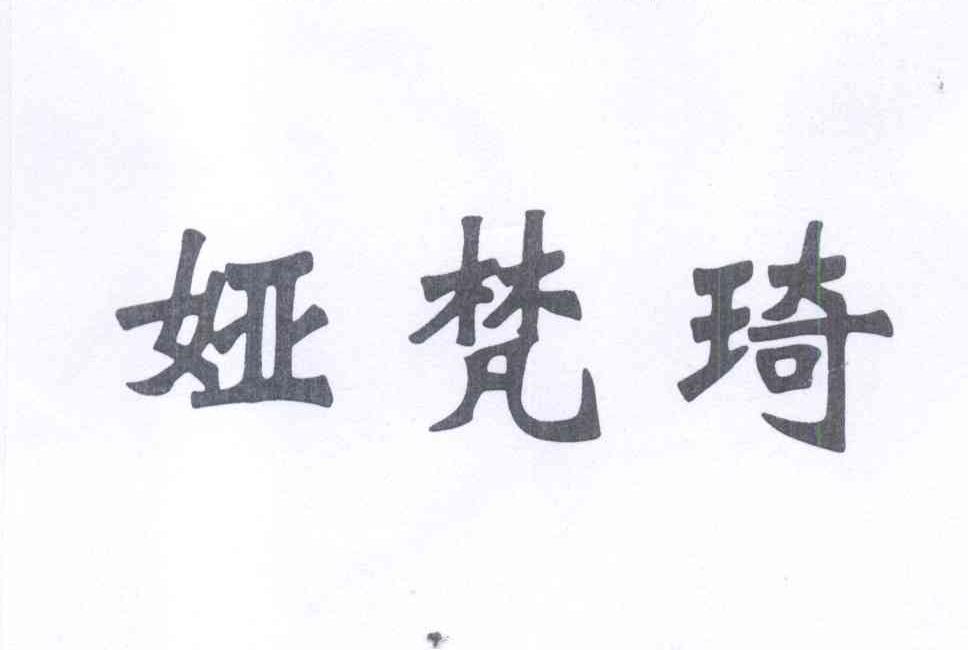 娅梵琦